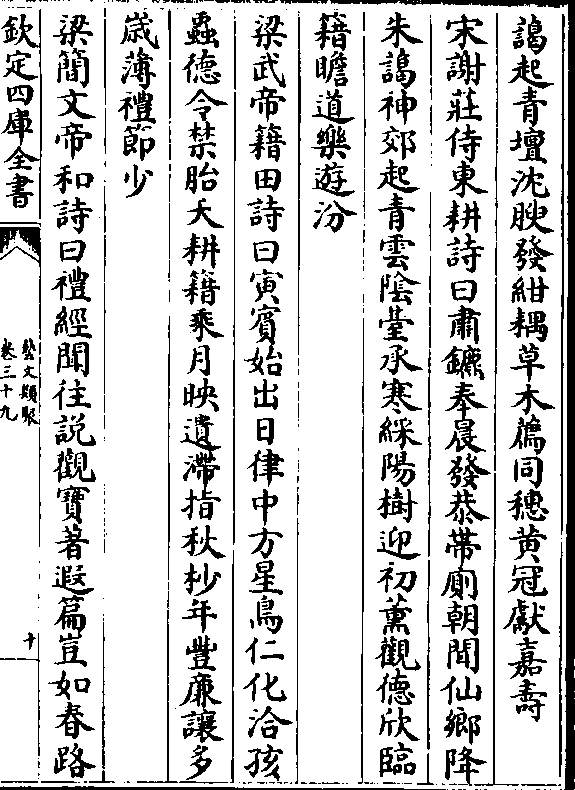 藹起青壇沈腴發紺耦草木薦同穗黄冠獻嘉壽
宋謝莊侍東耕詩曰肅鑣奉晨發恭帶廁朝聞仙鄉降
朱藹神郊起青雲陰臺承寒綵陽樹迎初薰觀德欣臨
籍瞻道樂遊汾
梁武帝籍田詩曰寅賓始出日律中方星鳥仁化洽孩
蟲德令禁胎夭耕籍乘月映遺滯指秋杪年豐廉讓多
歳薄禮節少
梁簡文帝和詩曰禮經聞往説觀寶著遐篇豈如春路
欽定四庫全書
藝文類聚
卷三十九
十